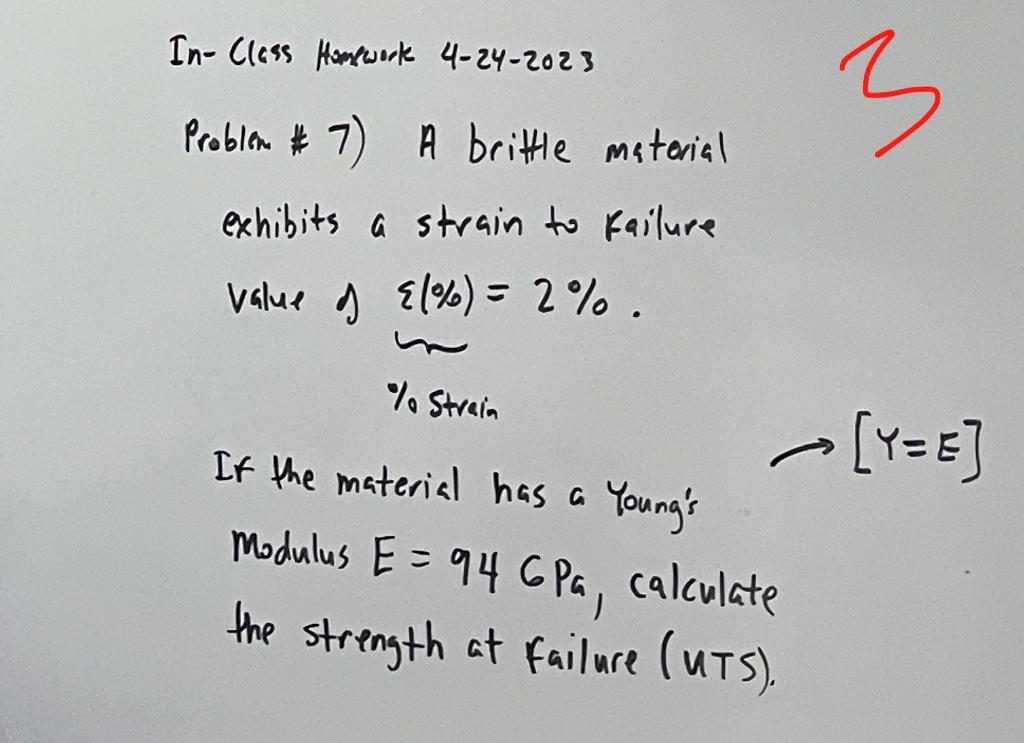 In-Class Homework 4-24-2023
3
Problem # 7) A brittle material
exhibits a strain to failure
value of ε(%) = 2%.
% Strain
→ [Y=E]
If the material has a Young's
Modulus E = 94 GPa, calculate
the strength at failure (UTS).